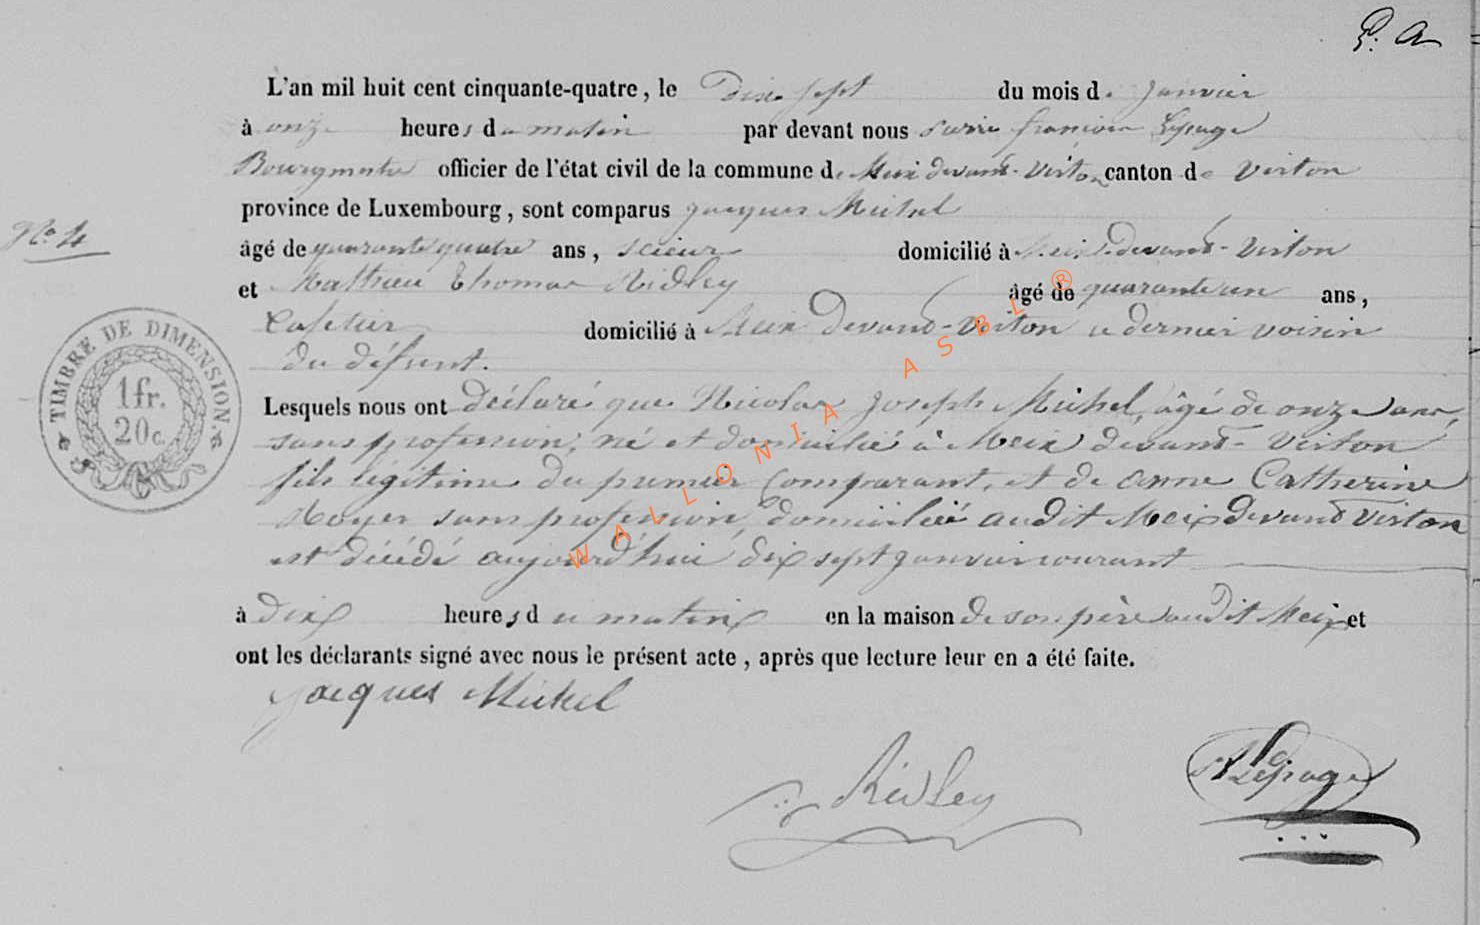 P. A
L'an mil huit cent cinquante-quatre, le Dix sept du mois de Janvier
à onze heures du matin par devant nous Pierre françois Lepage
Bourgmestre officier de l'état civil de la commune de Meix devant-Virton canton de Virton
province de Luxembourg, sont comparus Jacques Michel
No 4
âgé de quarante quatre ans, scieur domicilié à Meix devant-Virton
et Mathieu Thomas Ridley âgé de quarante un ans,
Cafetier domicilié à Meix Devant-Virton ce dernier voisin
du défunt.
Lesquels nous ont déclaré que Nicolas Joseph Michel, âgé de onze ans,
sans profession, né et domicilié à Meix devant-Virton
fils légitime du premier Comparant, et de anne Catherine
Royer sans profession, domiciliée audit Meix devant Virton
est décédé aujourd'hui dix sept janvier courant
à Dix heures du matin en la maison de son père audit Meix et
ont les déclarants signé avec nous le présent acte, après que lecture leur en a été faite.
Jacques Michel
Ridley
Lepage
TIMBRE DE DIMENSION.
1 fr.
20 c.
WALLONIA ASBL ®